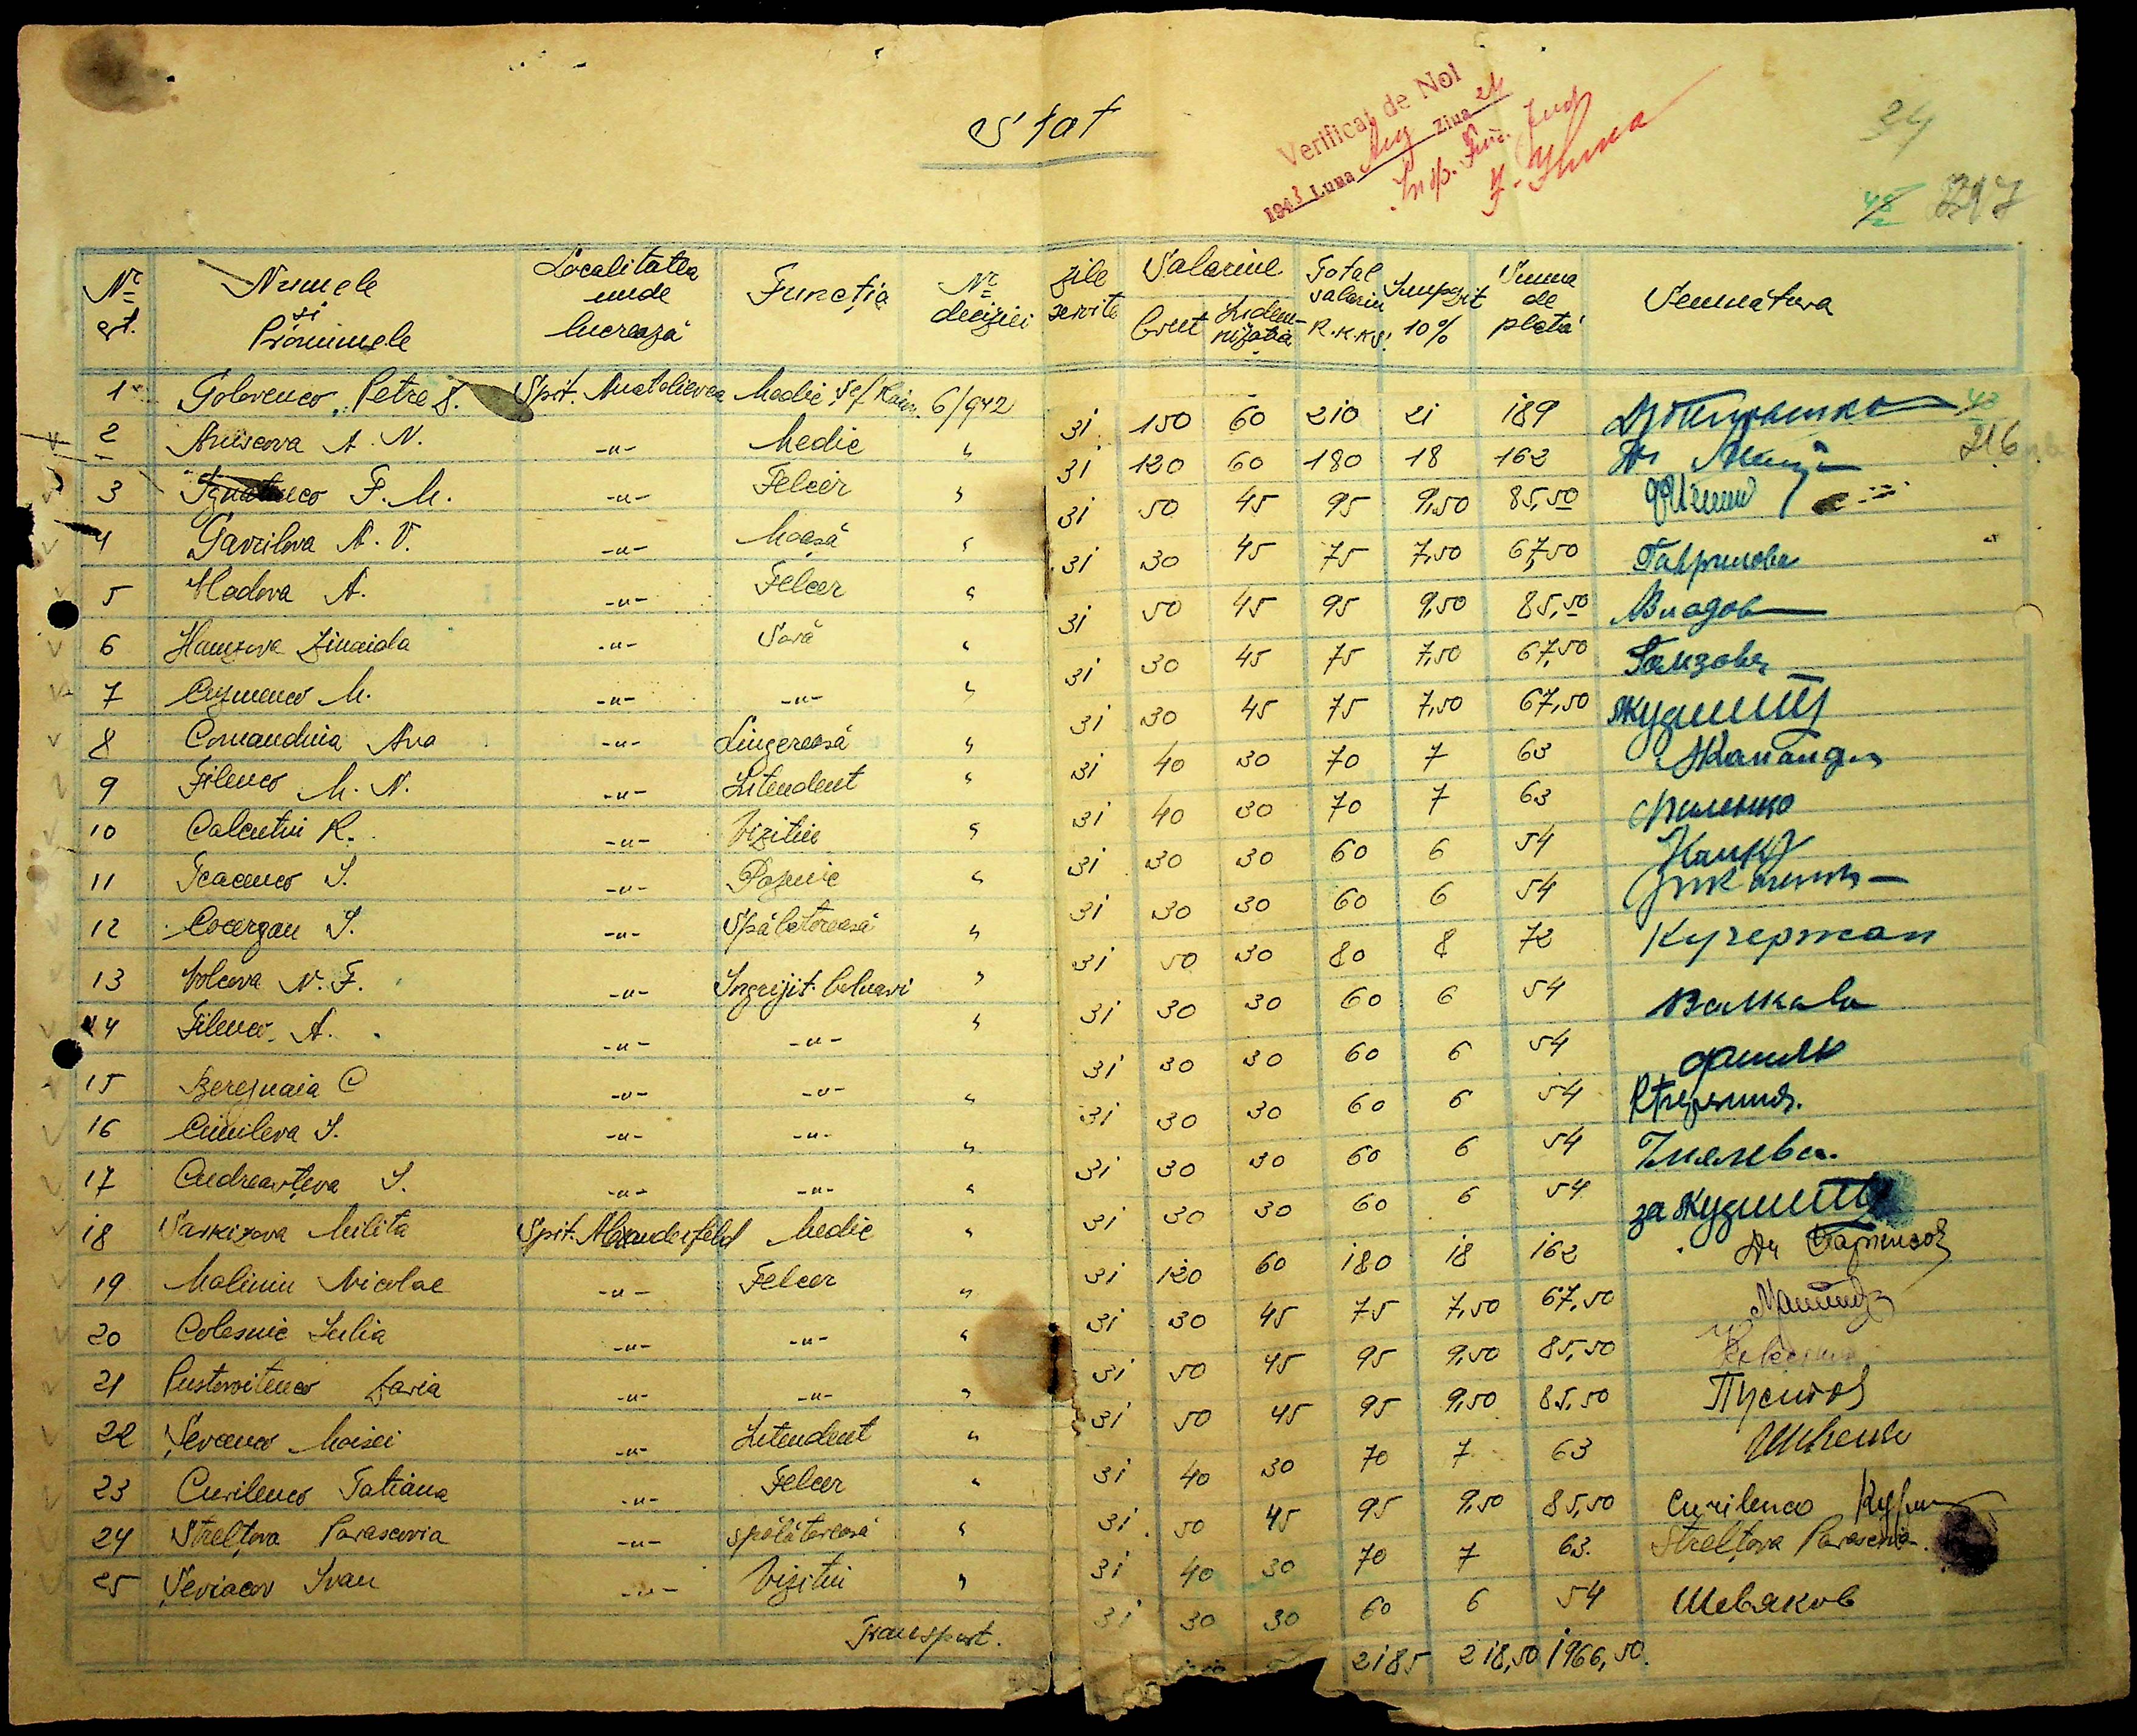 Stat
Verificat de Noi
1943 Luna Aug Ziua 21
Insp. Fin. Jud
34
48 217
Nr crt. Numele și Pronumele Localitatea unde lucrează Funcția Nr deciziei zile servite Salariul brut Indemnizația Total salariu R.K.KS. Impozit 10% Suma de plată Semnătura
1 Golovenco Petre S. Spit. Anatolievca Medic șef Raion 6/942 31 150 60 210 21 189
43
2 A. N. -"- Medic " 31 120 60 180 18 162 Др
216
3 Ignatenco F. M. -"- Felcer " 31 50 45 95 9,50 85,50
4 Gavrilova A. V. -"- Moașă " 31 30 45 75 7,50 67,50 Гаврилова
5 Vladova A. -"- Felcer " 31 50 45 95 9,50 85,50 Владов
6 Hamzova Zinaida -"- Soră " 31 30 45 75 7,50 67,50 Гамзова
7 M. -"- -"- " 31 30 45 75 7,50 67,50
8 Comandina Ana -"- Lingereasă " 31 40 30 70 7 63
9 Filenco M. N. -"- Intendent " 31 40 30 70 7 63 Филенко
10 R. -"- Vizitiu " 31 30 30 60 6 54
11 Tcacenco I. -"- Paznic " 31 30 30 60 6 54
12 Cocergan I. -"- Spălătoreasă " 31 50 30 80 8 72 Кучержан
13 Volcova N. F. -"- Îngrijit. bolnavi " 31 30 30 60 6 54 Валкава
14 Filenco A. -"- -"- " 31 30 30 60 6 54
15 Bereznaia C -"- -"- " 31 30 30 60 6 54
16 I. -"- -"- " 31 30 30 60 6 54
17 I. -"- -"- " 31 30 30 60 6 54 за
18 Sarkizova Milita Spit. Alexanderfeld Medic " 31 120 60 180 18 162 Др
19 Malinin Nicolae -"- Felcer " 31 30 45 75 7,50 67,50
20 Colesnic Iulia -"- -"- " 31 50 45 95 9,50 85,50
21 Pustovoitenco Daria -"- -"- " 31 50 45 95 9,50 85,50 Пустов
22 Șevcenco Moisei -"- Intendent " 31 40 30 70 7 63
23 Curilenco Tatiana -"- Felcer " 31 50 45 95 9,50 85,50 Curilenco
24 Strelțova Parascovia -"- spălătoreasă " 31 40 30 70 7 63. Strelțova Parascovia
25 Șeviacov Ivan -"- Vizitiu " 31 30 30 60 6 54 Шевяков
Transport. 2185 218,50 1966,50.